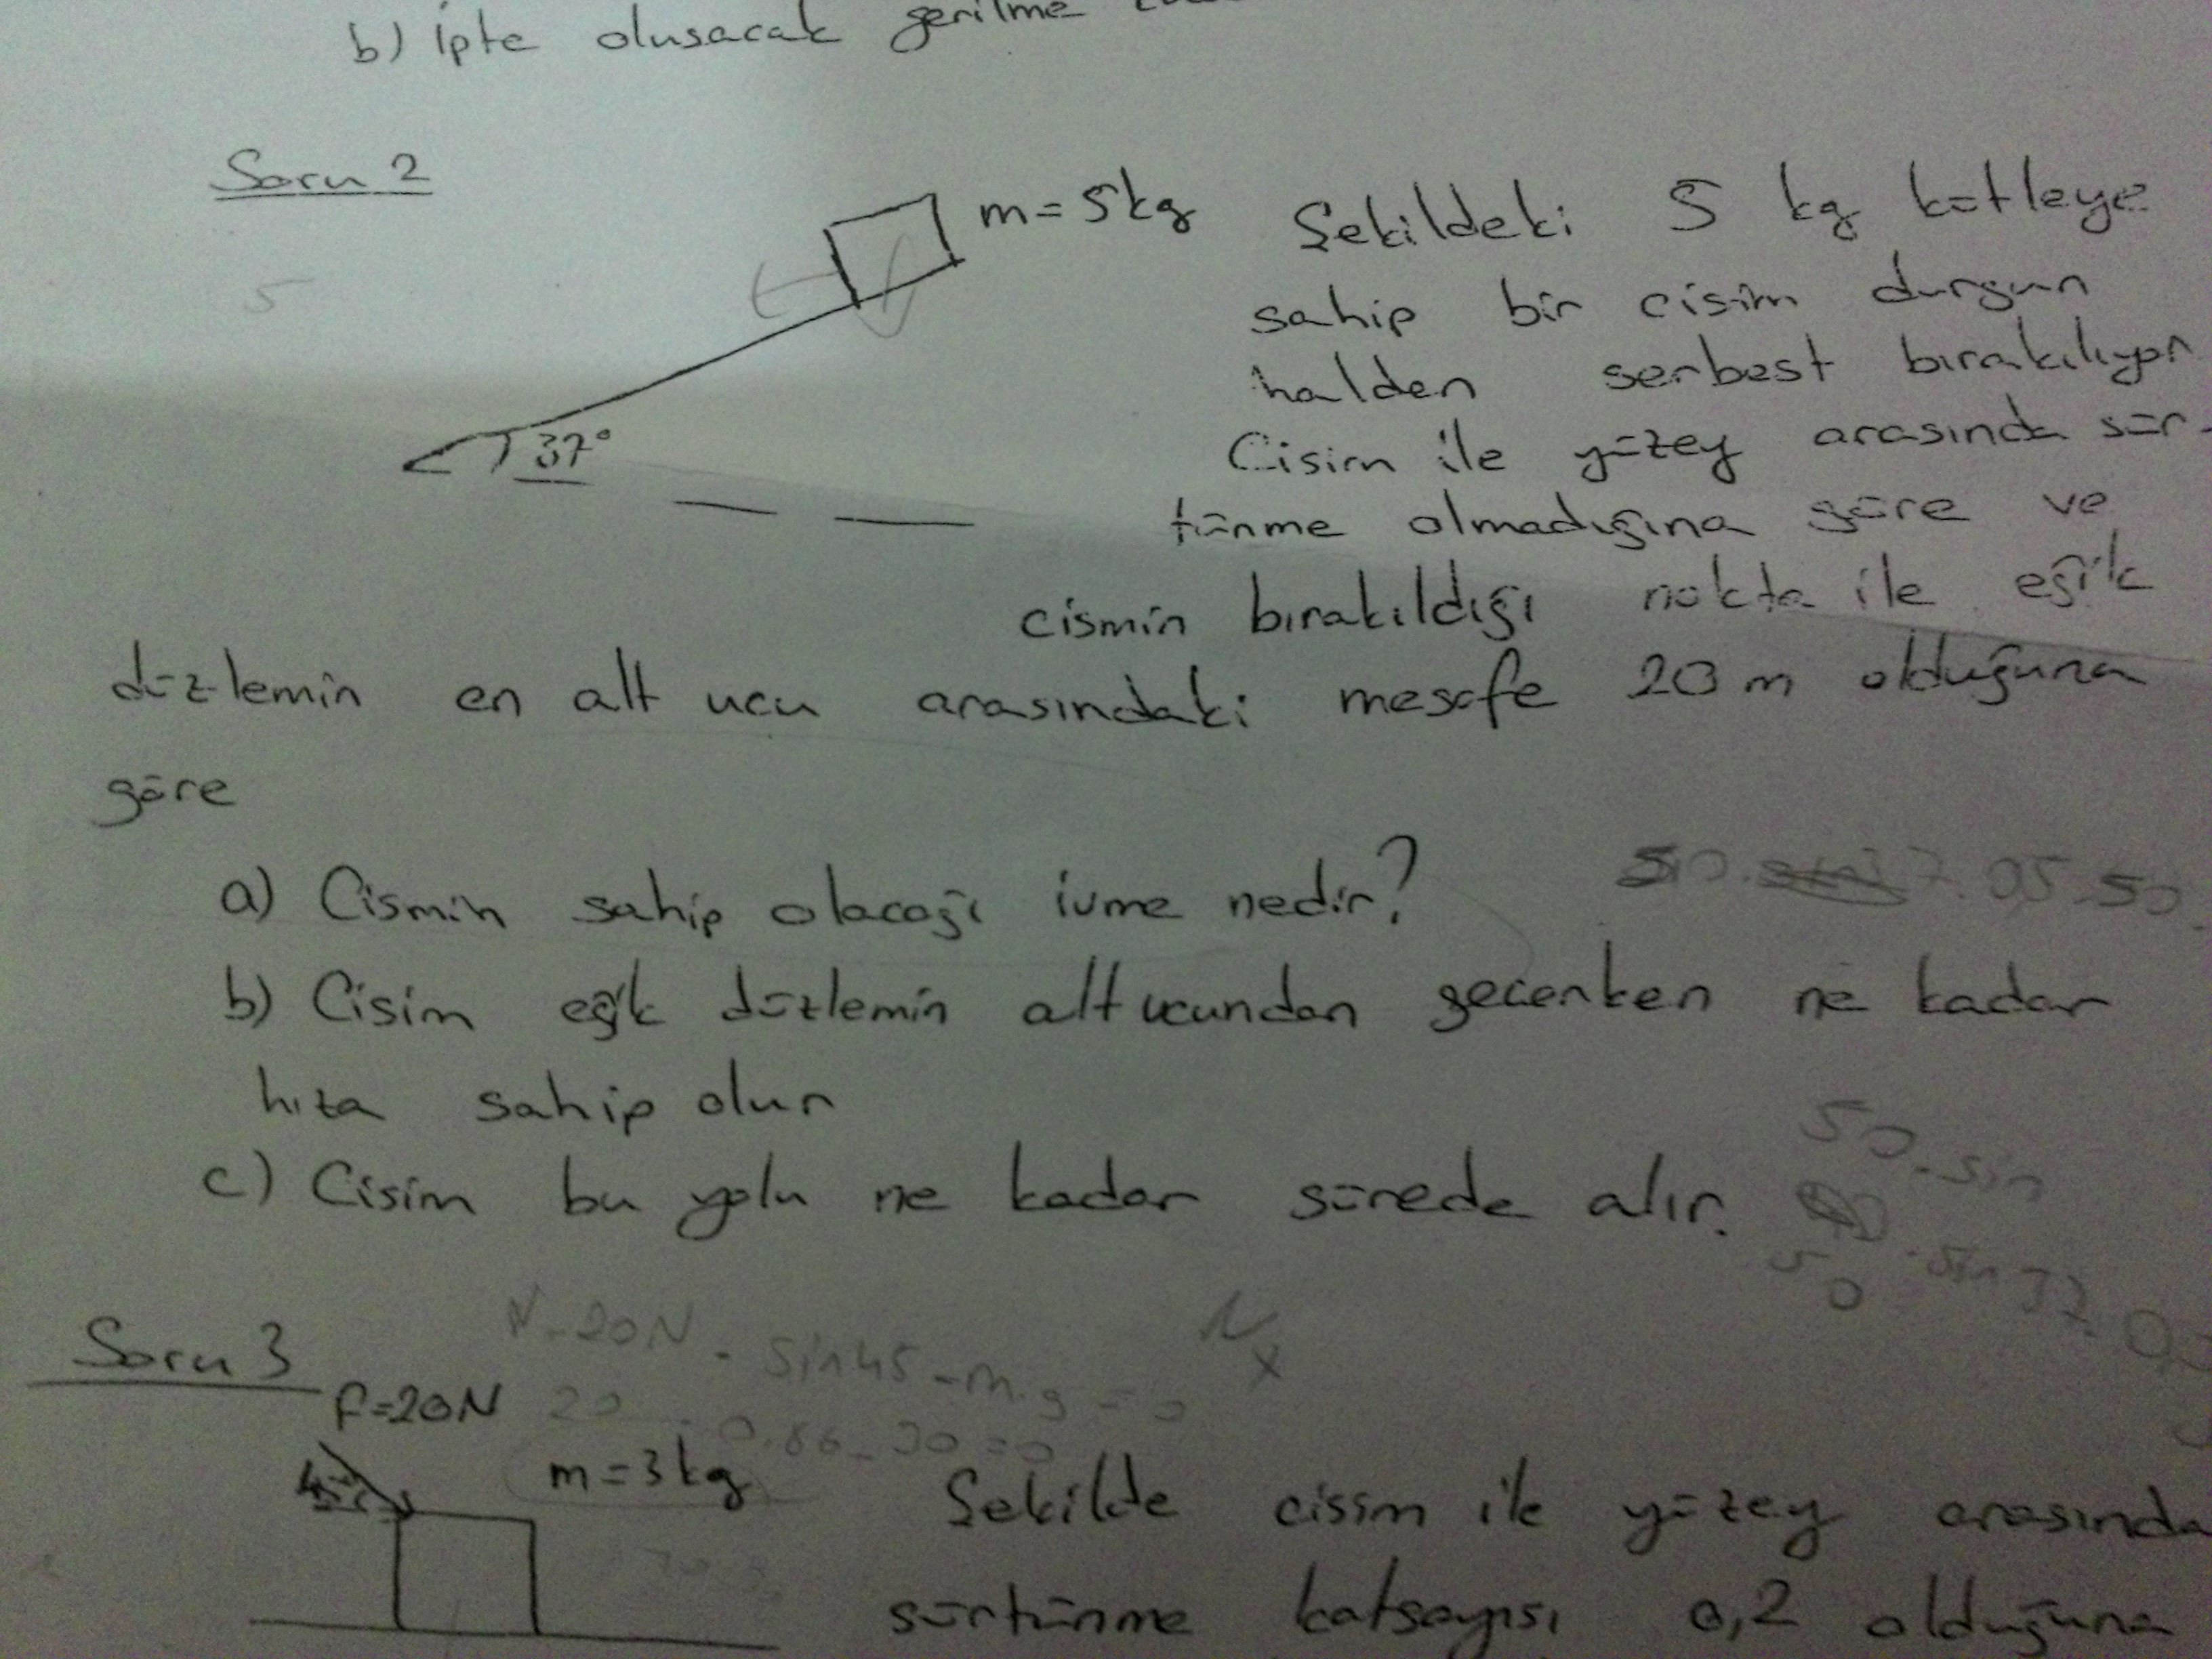 b) ipte olusacak gerilme
Soru 2
m=5kg
37°
Şekildeki 5 kg kütleye
sahip bir cisim durgun
halden serbest bırakılıyor
Cisim ile yüzey arasında sür-
tünme olmadığına göre ve
cismin bırakıldığı nokta ile eğik
düzlemin en alt ucu arasındaki mesafe 20 m olduğuna
göre
a) Cismin sahip olacağı ivme nedir?
b) Cisim eğik düzlemin alt ucundan geçerken ne kadar
hıza sahip olur
c) Cisim bu yolu ne kadar sürede alır.
50.sin
50.sin37
N-20N.Sin45-m.g=0
20.0.86-30=0
N
x
Soru 3
F=20N
m=3kg
45°
Şekilde cisim ile yüzey arasında
sürtünme katsayısı 0,2 olduğuna